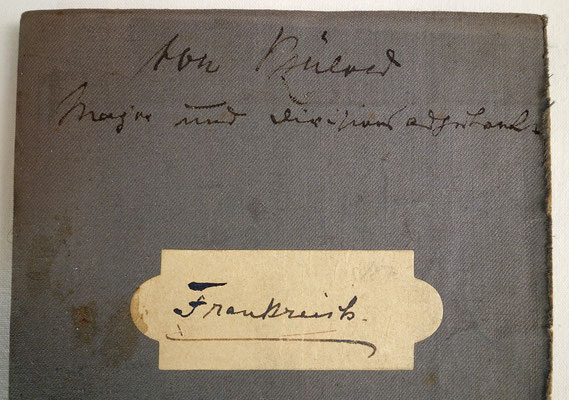 von Bülow
Major und Divisionsadjutant.
Frankreich.